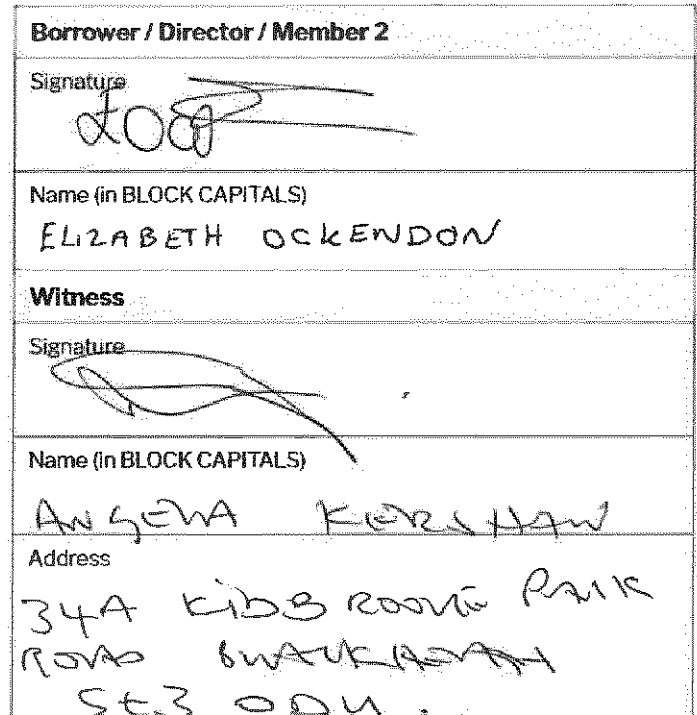 Borrower / Director / Member 2
Signature
Name (in BLOCK CAPITALS)
ELIZABETH OCKENDON
Witness
Signature
Name (in BLOCK CAPITALS)
ANGELA KERSHAW
Address
34A KIDBROOKE PARK
ROAD BLACKHEATH
SE3 0DU.